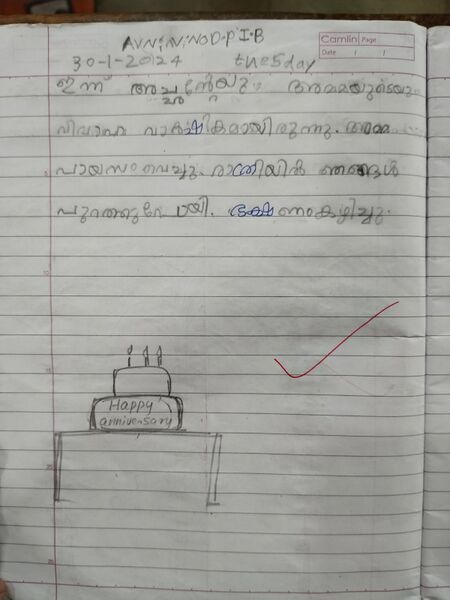 AVNi, ViNOD.P I.B
Camlin Page
Date / /
30-1-20124 tuesday
ഇന്ന് അച്ഛന്റേയും അമ്മയുടെയും
വിവാഹ വാര്‍ഷികമായിരുന്നു. അമ്മ
പായസം വെച്ചു. രാത്രിയില്‍ ഞങ്ങള്‍
പുറത്തുപോയി. ഭക്ഷണം കഴിച്ചു.
Happy
anniversary